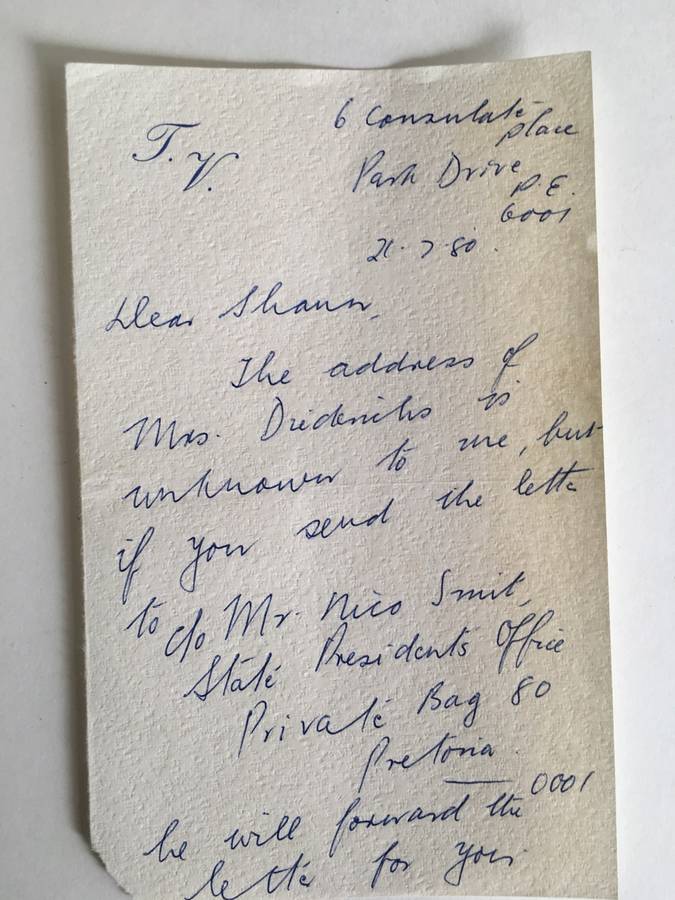 T.V.
6 Consulate
place
Park Drive
P.E.
6001
21.7.80.
Dear Shaun,
The address of
Mrs. Diederichs is
unknown to me, but
if you send the letter
to c/o Mr. Nico Smit,
State Presidents Office
Private Bag 80
Pretoria.
0001
he will forward the
letter for you